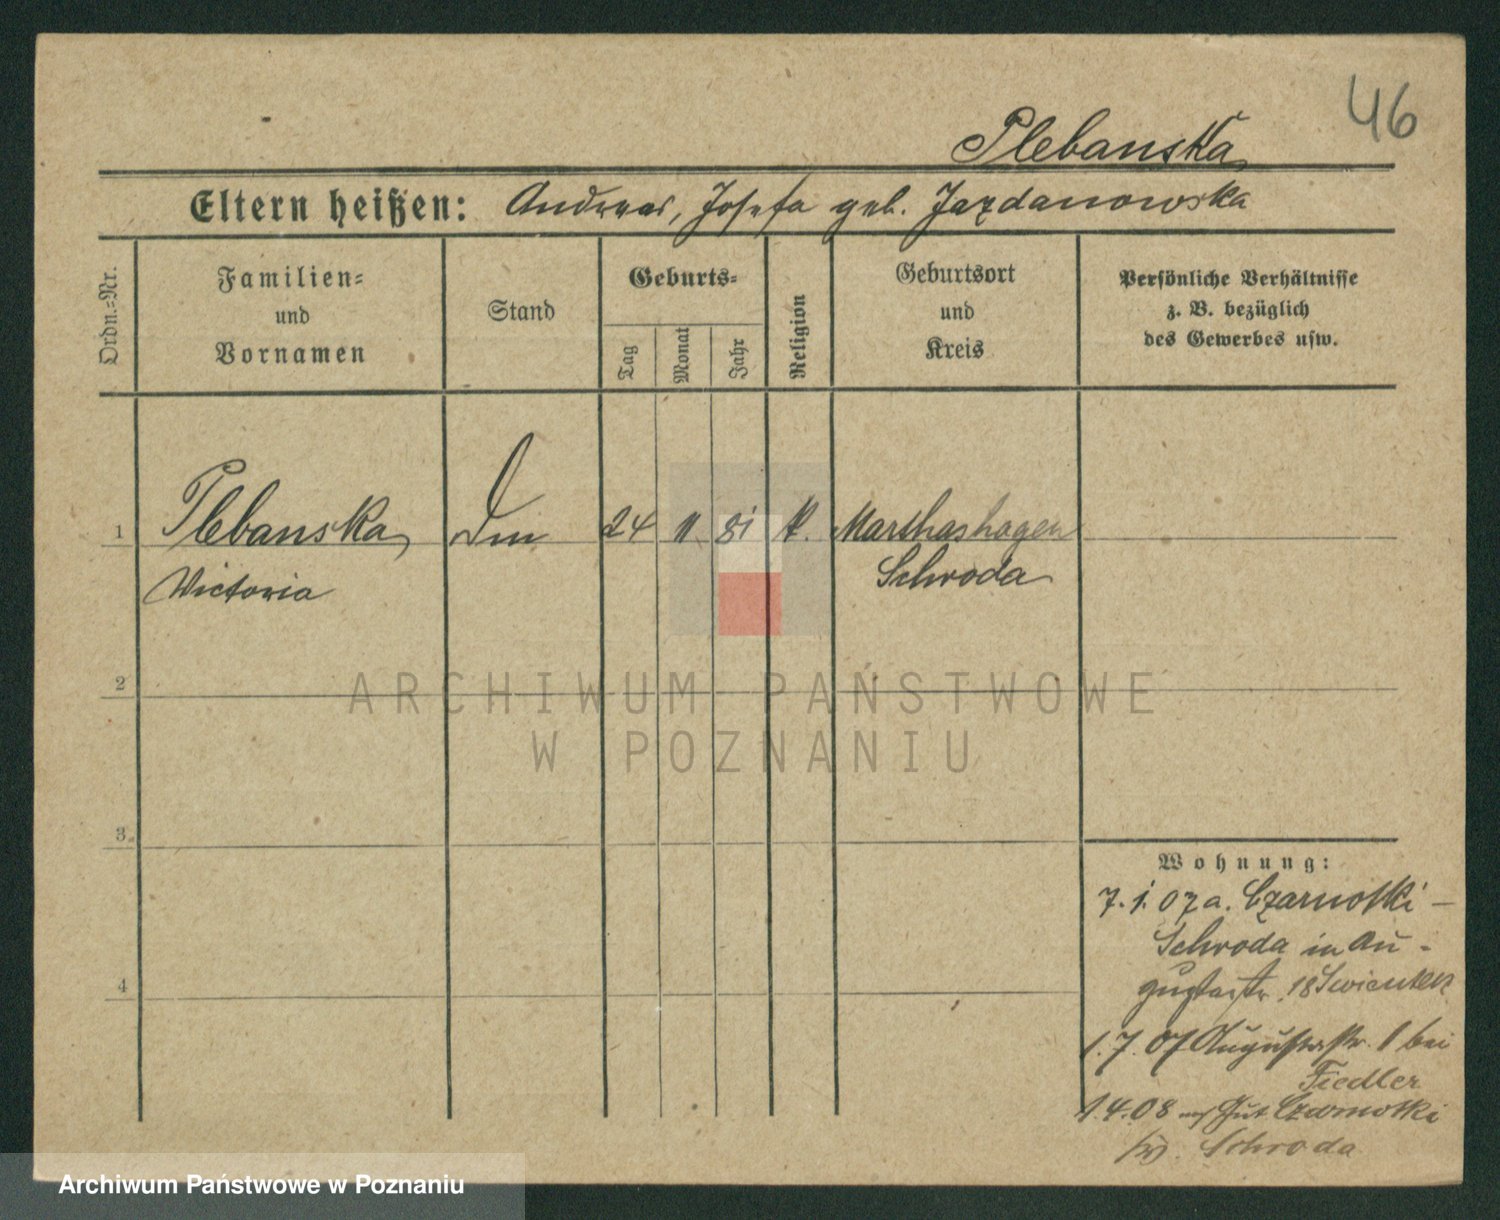 46
Plebanska
Eltern heißen: Andreas, Josefa geb. Jazdanowska
Ordn.=Nr.
Familien=
und
Vornamen
Stand
Geburts=
Tag
Monat
Jahr
Religion
Geburtsort
und
Kreis
Persönliche Verhältnisse
z. B. bezüglich
des Gewerbes usw.
1 Plebanska 24 11 81 k. Marshashagen
Victoria Schroda
2
3.
4
Wohnung:
7. 1. 07 a. Czarnotki –
Schroda in Au-
gustastr. 18 Swientek
1. 7. 07 Augustastr. 1 bei
Fiedler
1.4.08 Gut Czarnotki
Schroda
ARCHIWUM PAŃSTWOWE
W POZNANIU
Archiwum Państwowe w Poznaniu